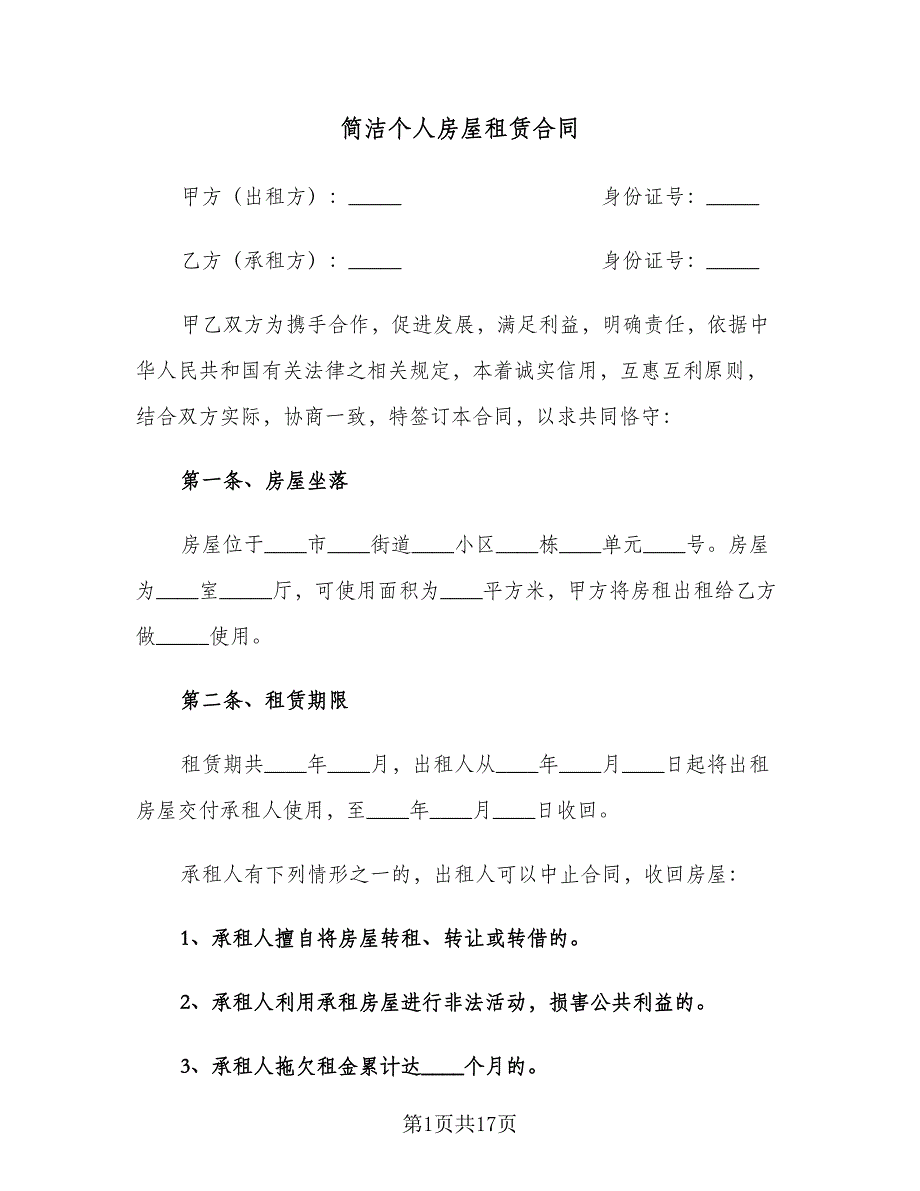 简洁个人房屋租赁合同
甲方（出租方）：_____ 身份证号：_____
乙方（承租方）：_____ 身份证号：_____
甲乙双方为携手合作，促进发展，满足利益，明确责任，依据中
华人民共和国有关法律之相关规定，本着诚实信用，互惠互利原则，
结合双方实际，协商一致，特签订本合同，以求共同恪守：
第一条、房屋坐落
房屋位于____市____街道____小区____栋____单元____号。房屋
为____室_____厅，可使用面积为____平方米，甲方将房租出租给乙方
做_____使用。
第二条、租赁期限
租赁期共____年____月，出租人从____年____月____日起将出租
房屋交付承租人使用，至____年____月____日收回。
承租人有下列情形之一的，出租人可以中止合同，收回房屋：
1、承租人擅自将房屋转租、转让或转借的。
2、承租人利用承租房屋进行非法活动，损害公共利益的。
3、承租人拖欠租金累计达____个月的。
第1页共17页